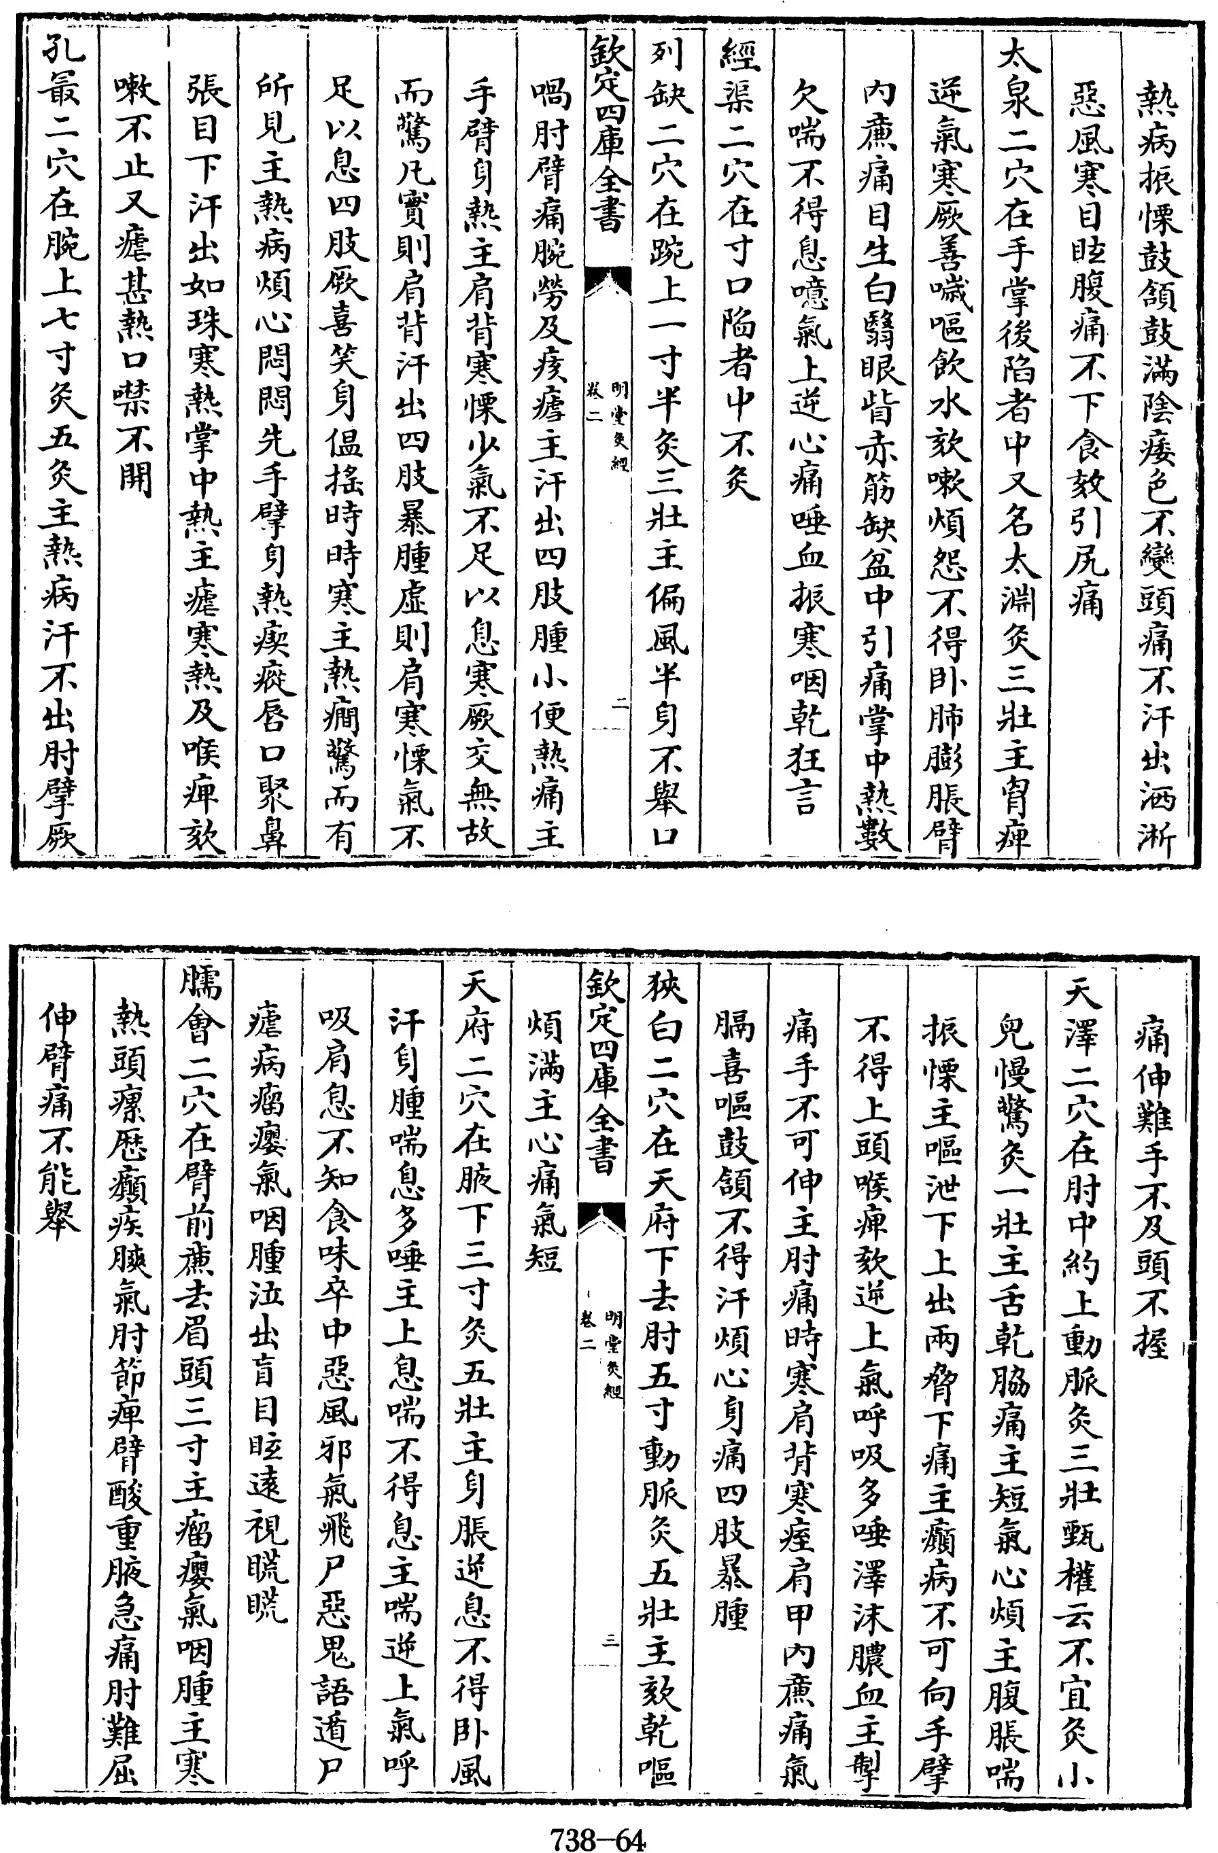 熱病振慄鼓頷鼓滿陰痿色不變頭痛不汗出洒淅
惡風寒目眩腹痛不下食欬引尻痛
太泉二穴在手掌後陷者中又名太淵灸三壯主胷痺
逆氣寒厥善噦嘔飲水欬嗽煩怨不得卧肺膨脹臂
内㢘痛目生白翳眼眥赤筋缺盆中引痛掌中熱數
欠喘不得息噫氣上逆心痛唾血振寒咽乾狂言
經渠二穴在寸口陷者中不灸
列缺二穴在踠上一寸半灸三壯主偏風半身不舉口
欽定四庫全書
明堂灸經
卷二
二
喎肘臂痛腕勞及痎瘧主汗出四肢腫小便熱痛主
手臂身熱主肩背寒慄少氣不足以息寒厥交無故
而驚凡實則肩背汗出四肢暴腫虚則肩寒慄氣不
足以息四肢厥喜笑身偘搖時時寒主熱癎驚而有
所見主熱病煩心悶悶先手臂身熱瘈瘲唇口聚鼻
張目下汗出如珠寒熱掌中熱主瘧寒熱及喉痺欬
嗽不止又瘧甚熱口噤不開
孔最二穴在腕上七寸灸五灸主熱病汗不出肘臂厥
痛伸難手不及頭不握
天澤二穴在肘中約上動脈灸三壯甄權云不宜灸小
兒慢驚灸一壯主舌乾脇痛主短氣心煩主腹脹喘
振慄主嘔泄下上出兩脅下痛主癲病不可向手臂
不得上頭喉痺欬逆上氣呼吸多唾澤沫膿血主掣
痛手不可伸主肘痛時寒肩背寒痓肩甲内㢘痛氣
膈喜嘔鼓頷不得汗煩心身痛四肢暴腫
狹白二穴在天府下去肘五寸動脈灸五壯主欬乾嘔
欽定四庫全書
明堂灸經
卷二
三
煩滿主心痛氣短
天府二穴在腋下三寸灸五壯主身脹逆息不得卧風
汗身腫喘息多唾主上息喘不得息主喘逆上氣呼
吸肩息不知食味卒中惡風邪氣飛尸惡鬼語遁尸
瘧病瘤癭氣咽腫泣出盲目眩遠視䀮䀮
臑會二穴在臂前㢘去眉頭三寸主瘤癭氣咽腫主寒
熱頭瘰歴癲疾腠氣肘節痺臂酸重腋急痛肘難屈
伸臂痛不能舉
738-64